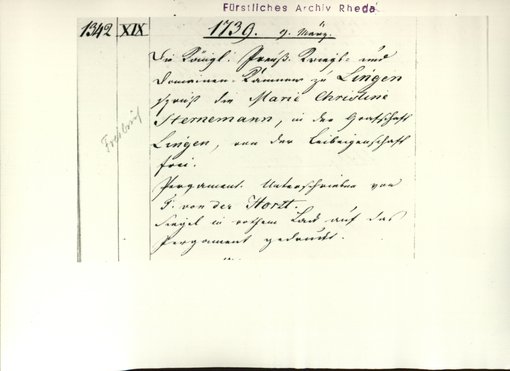 Fürstliches Archiv Rheda
1342 XIX 1739. 9. März.
Die Königl: Preuß. Kriegs- und
Domainen-Kammer zu Lingen
spricht die Marie Christine
Sternemann, in der Grafschaft
Lingen, von der Leibeigenschaft
frei.
Freibrief
Pergament. Unterschrieben von
F. von der Horst.
Siegel in rothem Lack auf das
Pergament gedruckt.